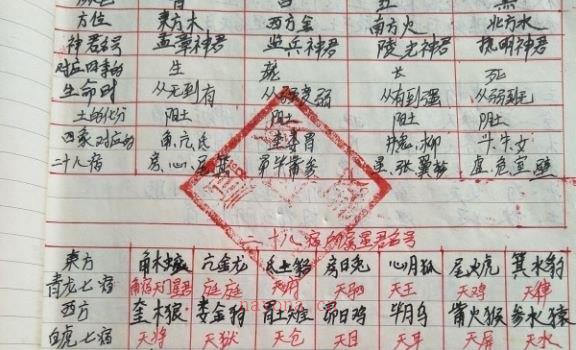 方位 东方木 西方金 南方火 北方水
神君名号 孟章神君 监兵神君 陵光神君 执明神君
对应四季的 生 长 死
生命时 从无到有 从强变弱 从有到强 从弱到无
土的化分 阳土 阴土 阳土
四象对应的 角亢氐 奎娄胃 井鬼柳 斗牛女
二十八宿 房心尾箕 昴毕觜参 星张翼轸 虚危室壁
二十八宿的星君名号
东方 角木蛟 亢金龙 氐土貉 房日兔 心月狐 尾火虎 箕水豹
青龙七宿 角宿天门星君 庭庭 天府 天驷 天王 天鸡 天律
西方 奎木狼 娄金狗 胃土雉 昴日鸡 毕月乌 觜火猴 参水猿
白虎七宿 天将 天狱 天仓 天目 天耳 天屏 天水